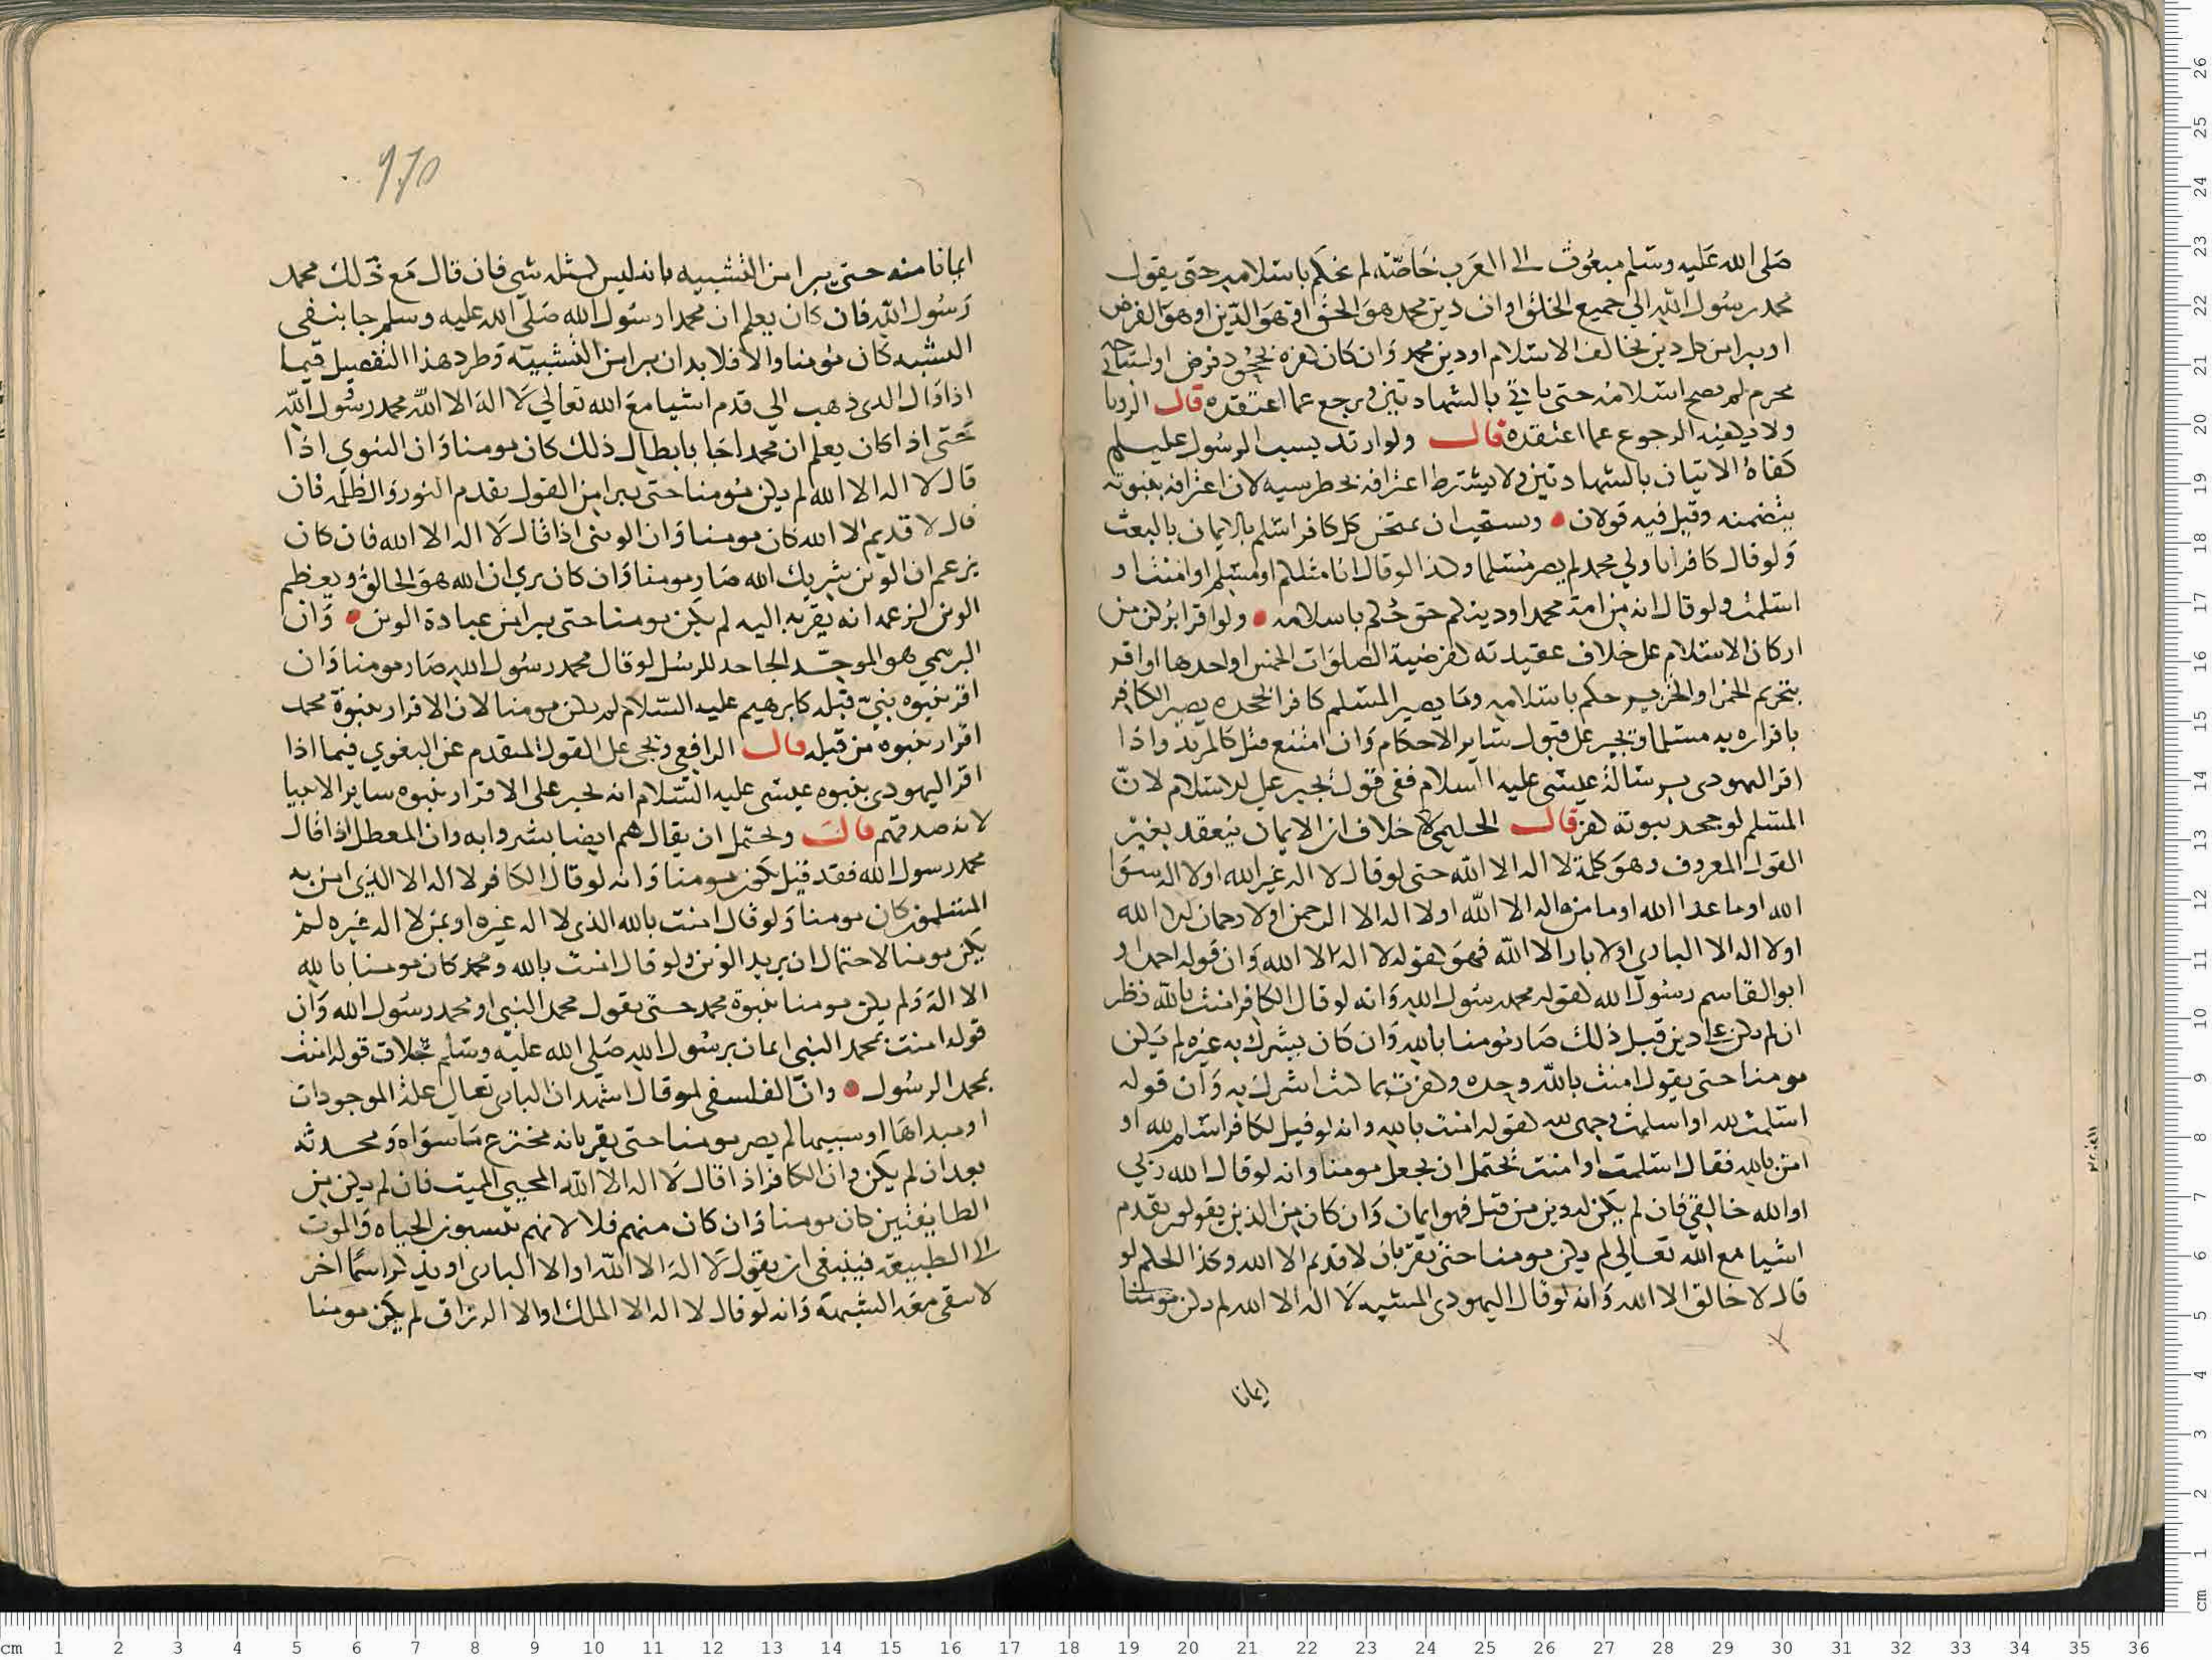 صلى الله عليه وسلم مبعوث الى العرب خاصّة لم نحكم باسلامه حتى يقول
محمد رسول الله الي جميع الخلق او ان دين محمد هو الحق او هو الدين او هو الفرض
او يبرا من كل دين يخالف الاسلام او دين محمد وان كان كفره بجحود فرض او استباحة
محرم لم يصح اسلامه حتى ياتي بالشهادتين ويرجع عما اعتقده قال
ولا يكفيه الرجوع عما اعتقده قال ولو ارتد بسب الرسول عليه
كفاه الاتيان بالشهادتين ولا يشترط اعترافه بخطر سبه لان اعترافه بنبوته
يتضمنه وقيل فيه قولان ويستحب ان يمتحن كل كافر اسلم بالايمان بالبعث
ولو قال كافر انا ولي محمد لم يصر مسلما وكذا لو قال انا مثلكم او مسلم او امنت او
اسلمت ولو قال انه من امة محمد او دينكم حق حكم باسلامه ولو اقر بركن من
اركان الاسلام على خلاف عقيدته كفرضية الصلوات الخمس او احدها او اقر
بتحريم الخمر او الخنزير حكم باسلامه وما يصير المسلم كافرا بجحده يصير الكافر
باقراره به مسلما ويجبر على قبول ساير الاحكام وان امتنع قتل كالمرتد واذا
اقر اليهودى برسالة عيسى عليه السلام ففى قول يجبر على الاسلام لانّ
المسلم لو جحد نبوته كفر قال الحليمي لا خلاف ان الايمان ينعقد بغير
القول المعروف وهو كلمة لا اله الا الله حتى لو قال لا اله غير الله او لا اله سوا
الله او ما عدا الله او ما من اله الا الله او لا اله الا الرحمن او لا رحمان الا الله
او لا اله الا البارى او لا بار الا الله فهو كقوله لا اله الا الله وان قوله احمد او
ابو القاسم رسول الله كقوله محمد رسول الله وانه لو قال الكافر امنت بالله نظر
ان لم يكن على دين قبل ذلك صار مومنا بالله وان كان يشرك به غيره لم يكن
مومنا حتى يقول امنت بالله وحده وكفرت بما كنت اشرك به وان قوله
اسلمت لله او اسلمت وجهى لله كقوله امنت بالله وانه لو قيل لكافر اسلم لله او
امن بالله فقال اسلمت او امنت يحتمل ان يجعل مومنا وانه لو قال الله ربي
او الله خالقي فان لم يكن له دين من قبل فهو ايمان وان كان من الذين يقولون بقدم
اشيا مع الله تعالى لم يكن مومنا حتى يقرّ بان لا قديم الا الله وكذا الحكم لو
قال لا خالق الا الله وانه لو قال اليهودى المشبه لا اله الا الله لم يكن مومنا
ايمانا
ايمانا منه حتى يبرا من التشبيه بانه ليس كمثله شى فان قال مع ذلك محمد
رسول الله فان كان يعلم ان محمدا رسول الله صلى الله عليه وسلم جا بنفى
التشبيه كان مومنا والا فلا بد ان يبرا من التشبيه وطرد هذا التفصيل فيما
اذا قال الذى ذهب الي قدم اشيا مع الله تعالي لا اله الا الله محمد رسول الله
حتى اذا كان يعلم ان محمدا جا بابطال ذلك كان مومنا وان الثنوي اذا
قال لا اله الا الله لم يكن مومنا حتى يبرا من القول بقدم النور والظلمة فان
قال لا قديم الا الله كان مومنا وان الوثنى اذا قال لا اله الا الله فان كان
يزعم ان الوثن شريك الله صار مومنا وان كان يرى ان الله هو الخالق ويعظم
الوثن لزعمه انه يقربه اليه لم يكن مومنا حتى يبرا من عبادة الوثن وان
البرهمي هو الموحّد الجاحد للرسل لو قال محمد رسول الله صار مومنا وان
اقر بنبوه نبيّ قبله كابرهيم عليه السلام لم يكن مومنا لان الاقرار بنبوة محمد
اقرار بنبوه من قبله قال الرافعي ويجى على القول المتقدم عن البغوي فيما اذا
اقر اليهودى بنبوه عيسى عليه السلام انه يجبر على الاقرار بنبوه ساير الانبيا
لانه صدقهم قال ويحتمل ان يقال هم ايضا بشروا به وان المعطل اذا قال
محمد رسول الله فقد قيل يكون مومنا وانه لو قال الكافر لا اله الا الذي امن به
المسلمون كان مومنا ولو قال امنت بالله الذى لا اله غيره او بمن لا اله غيره لم
يكن مومنا لاحتمال ان يريد الوثن ولو قال امنت بالله ومحمد كان مومنا بالله
الا انه لم يكن مومنا بنبوة محمد حتى يقول محمد النبى او محمد رسول الله وان
قوله امنت بمحمد النبى ايمان برسول الله صلى الله عليه وسلم بخلاف قوله امنت
بمحمد الرسول وان الفلسفى لو قال اشهد ان البارى تعالى علة الموجودات
او مبداها او سببها لم يصر مومنا حتى يقر بانه مخترع ما سواه ومحدثه
بعد ان لم يكن وان الكافر اذا قال لا اله الا الله المحيى المميت فان لم يكن من
الطبايعيين كان مومنا وان كان منهم فلا لانهم ينسبون الحياه والموت
الى الطبيعة فينبغى ان يقول لا اله الا الله او الا البارى او يذكر اسمًا اخر
لا يبقى معه الشبهة وانه لو قال لا اله الا الملك او الا الرزاق لم يكن مومنا